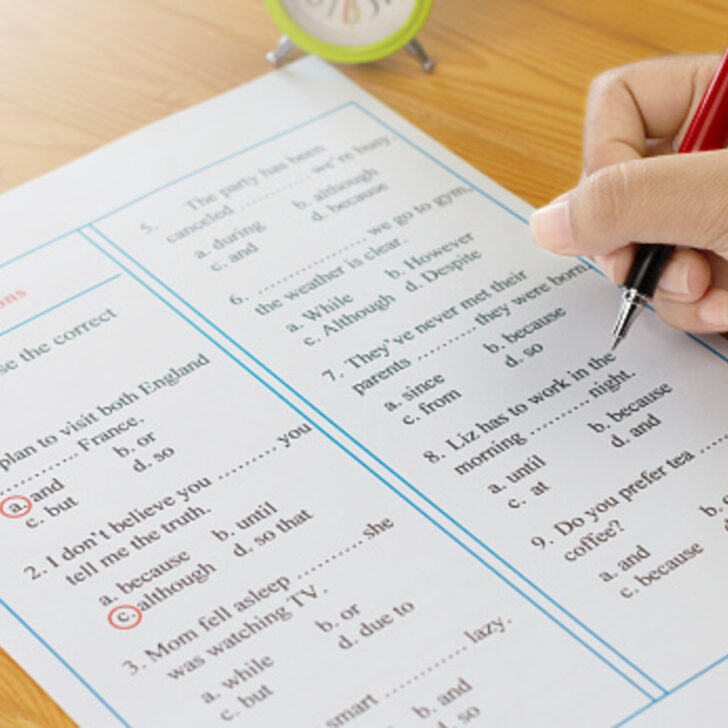 ons
se the correct
plan to visit both England
.............. France.
a. and b. or
c. but d. so
2. I don't believe you ........ you
tell me the truth.
a. because b. until
c. although d. so that
3. Mom fell asleep .......... she
was watching TV.
a. while b. or
c. but d. due to
smart ............ lazy.
b. and
d. so
5. The party has been
canceled ............ we're busy.
a. during b. although
c. and d. because
6. .................. we go to gym,
the weather is clear.
a. While b. However
c. Although d. Despite
7. They've never met their
parents .......... they were born.
a. since b. because
c. from d. so
8. Liz has to work in the
morning .......... night.
a. until b. because
c. at d. and
9. Do you prefer tea .....
coffee?
a. and b.
c. because